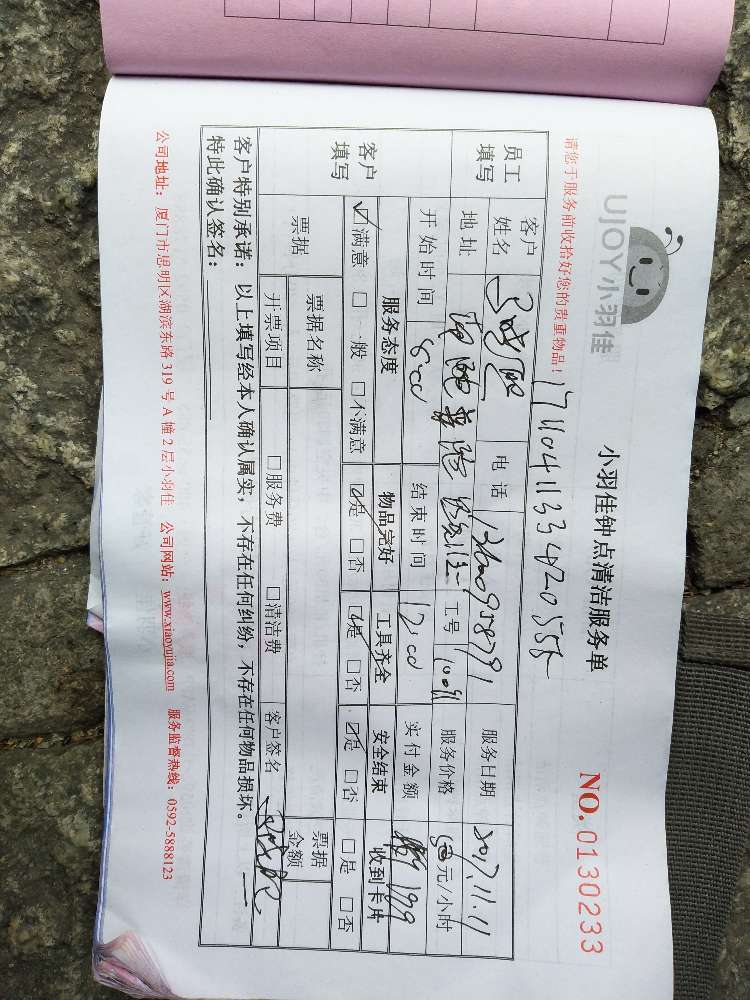 UJOY小羽佳
小羽佳钟点清洁服务单
NO. 0130233
请您于服务前收拾好您的贵重物品！
员工填写
客户姓名
电话
服务日期 2017.11.11
地址
工号
服务价格 元/小时
开始时间 8:00
结束时间 12:00
实付金额
客户填写
服务态度 物品完好 工具齐全 安全结束 收到卡片
☑满意 □一般 □不满意 ☑是 □否 ☑是 □否 ☑是 □否 □是 □否
票据
票据名称
票据金额
开票项目 □服务费 □清洁费 客户签名
客户特别承诺：以上填写经本人确认属实，不存在任何纠纷，不存在任何物品损坏。
特此确认签名：
公司地址：厦门市思明区湖滨东路 319 号 A 幢 2 层小羽佳 公司网站：www.xiaoyujia.com 服务监督热线：0592-5888123